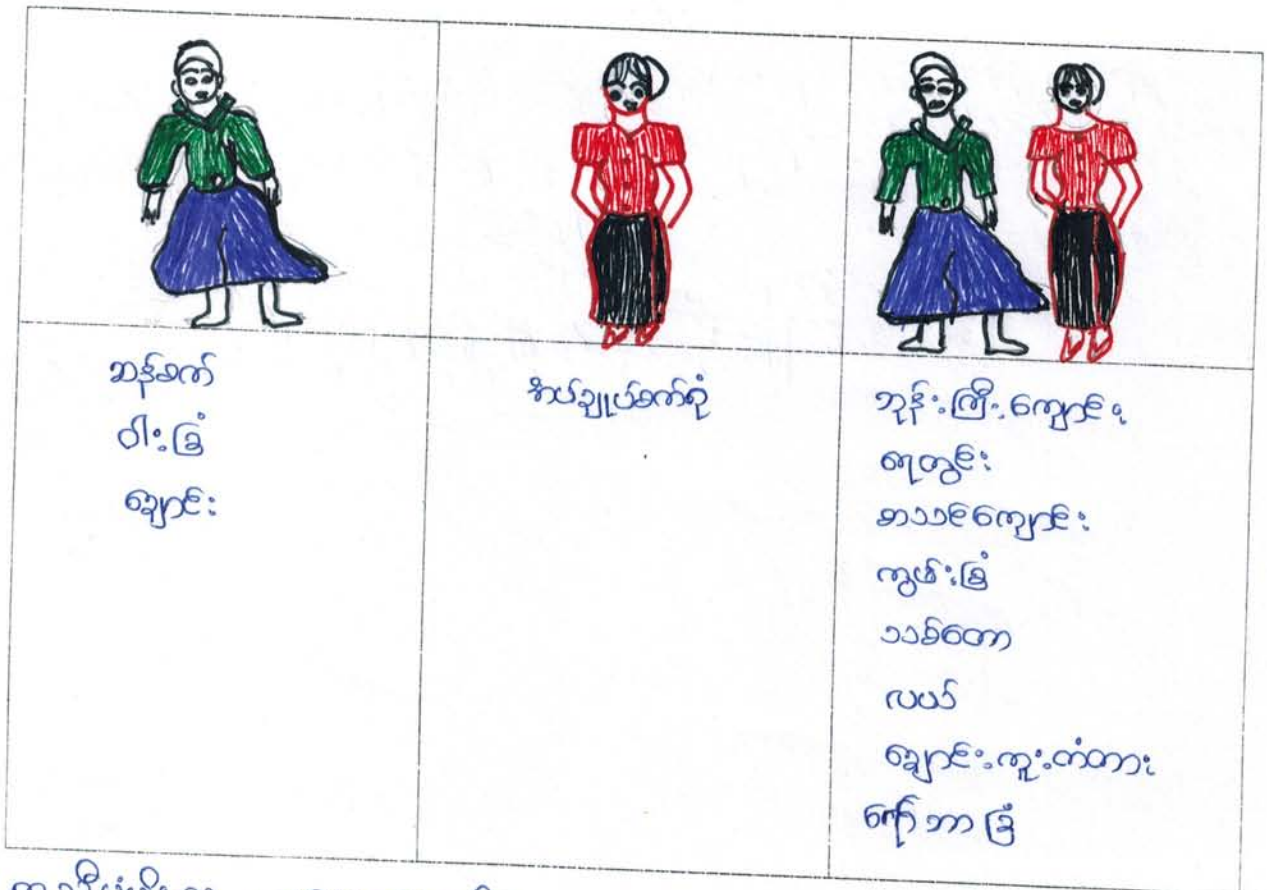 ဆန်စက်
ဝါးခြံ
ချောင်း
အပ်ချုပ်စက်ရုံ
ဘုန်းကြီးကျောင်း
ရေတွင်း
စာသင်ကျောင်း
ကွမ်းခြံ
သစ်တော
လယ်
ချောင်းကူးတံတား
ရော်ဘာခြံ